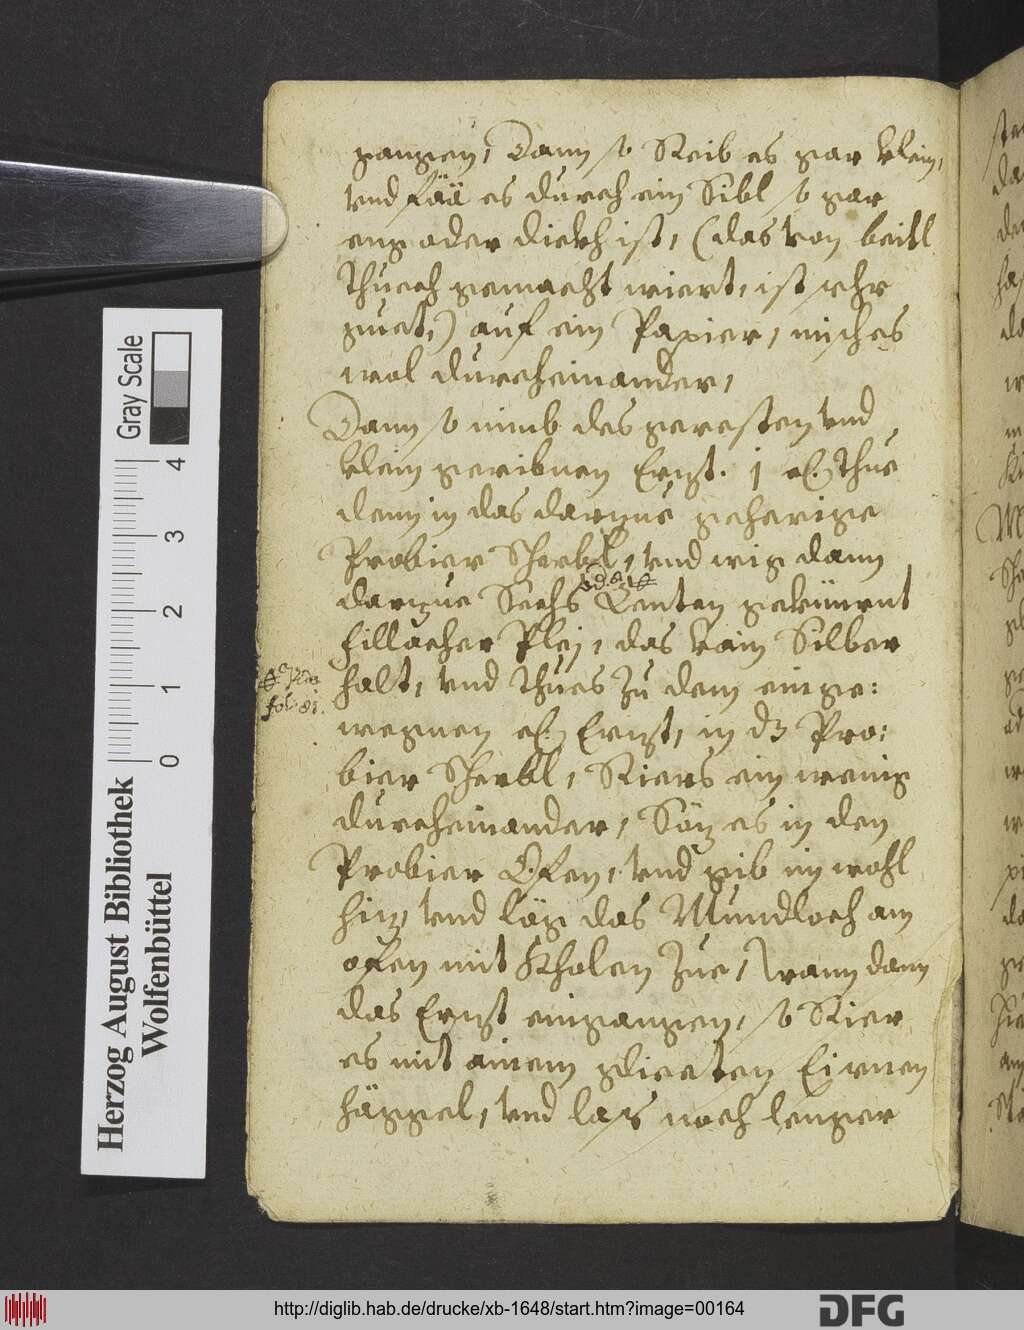 gangen, Dann so Reib es gar klein,
vnd Fää es durch ein Sibl so gar
eng oder dickh ist, (das von beitl
Thuech gemacht wiert, ist sehr
guet,) auf ein Papier, misch es
wol durcheinander,
Dann so nimb des gereſten vnd
klein geribnen Erzt. j Thue
denn in das darzue geherige
Probier Scherbl, vnd wig dann
darzue Sechs Zenten gekürnt
Fillacher Pleij, das kain Silber
halt, vnd Thues Zu dem einge:
wegnen Erzt, in dz Pro:
bier Scherbl, Riers ein wenig
durcheinander, Söz es in den
Probier Ofen, vnd gib im wohl
hiz, vnd läg das Mundloch am
ofen mit Kholen Zue, wann dann
das Erzt eingangen, so Rier
es mit ainem glieeten Eirnen
häggel, vnd lass noch lenger
fol: 81.
Herzog August Bibliothek
Wolfenbüttel
Gray Scale
0 1 2 3 4
http://diglib.hab.de/drucke/xb-1648/start.htm?image=00164
DFG